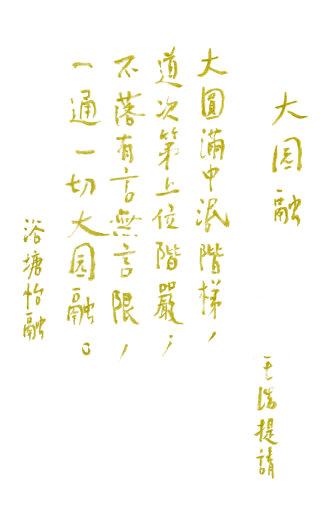 大园融
王浩提請
大圓滿中泯階梯，
道次第上位階嚴；
不落有言無言限，
一通一切大园融。
浴塘怡融